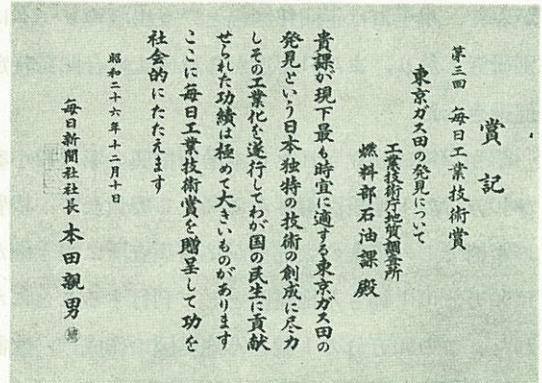 賞記
第三回 毎日工業技術賞
東京ガス田の発見について
工業技術庁地質調査所
燃料部石油課殿
貴課が現下最も時宜に適する東京ガス田の
発見という日本独特の技術の創成に尽力
しその工業化を遂行してわが国の民生に貢献
せられた功績は極めて大きいものがあります
ここに毎日工業技術賞を贈呈して功を
社会的にたたえます
昭和二十六年十二月十日
毎日新聞社社長 本田親男